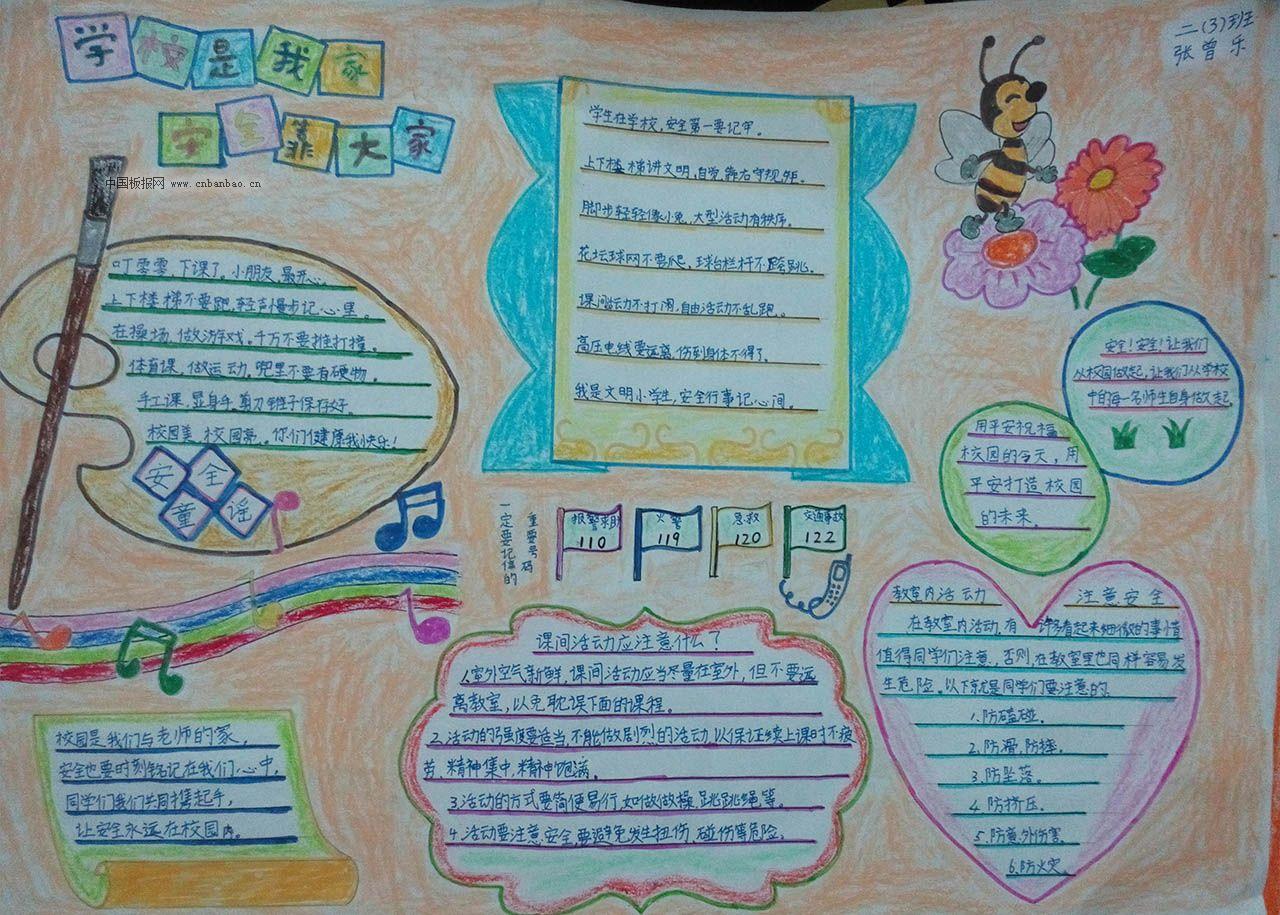 学校是我家
安全靠大家
二(3)班
张曾乐
中国板报网 www.cnbanbao.cn
叮零零,下课了。小朋友,最开心。
上下楼梯不要跑,轻声慢步记心里。
在操场,做游戏。千万不要推打撞。
体育课,做运动。兜里不要有硬物。
手工课,显身手。剪刀锥子保存好。
校园美,校园亮。你们健康我快乐!
安全
童谣
学生在学校,安全第一要记牢。
上下楼梯讲文明,自觉靠右守规矩。
脚步轻轻像小兔,大型活动有秩序。
花坛球网不要爬,球台栏杆不跨跳。
课间活动不打闹,自由活动不乱跑。
高压电线要远离,伤到身体不得了。
我是文明小学生,安全行事记心间。
安全!安全!让我们
从校园做起,让我们从学校
中的每一名师生自身做起。
用平安祝福
校园的今天,用
平安打造校园
的未来。
一定要记住的
重要号码
报警求助
110
火警
119
急救
120
交通事故
122
校园是我们与老师的家,
安全也要时刻铭记在我们心中,
同学们我们共同携起手,
让安全永远在校园内。
课间活动应注意什么?
1.室外空气新鲜,课间活动应当尽量在室外,但不要远
离教室,以免耽误下面的课程。
2.活动的强度要适当,不能做剧烈的活动,以保证继续上课时不疲
劳、精神集中,精神饱满。
3.活动的方式要简便易行,如做做操,跳跳绳等。
4.活动要注意安全,要避免发生扭伤、碰伤等危险。
教室内活动 注意安全
在教室内活动,有许多看起来细微的事情
值得同学们注意,否则,在教室里也同样容易发
生危险。以下就是同学们要注意的。
1.防磕碰。
2.防滑,防摔。
3.防坠落。
4.防挤压。
5.防意外伤害。
6.防火灾。